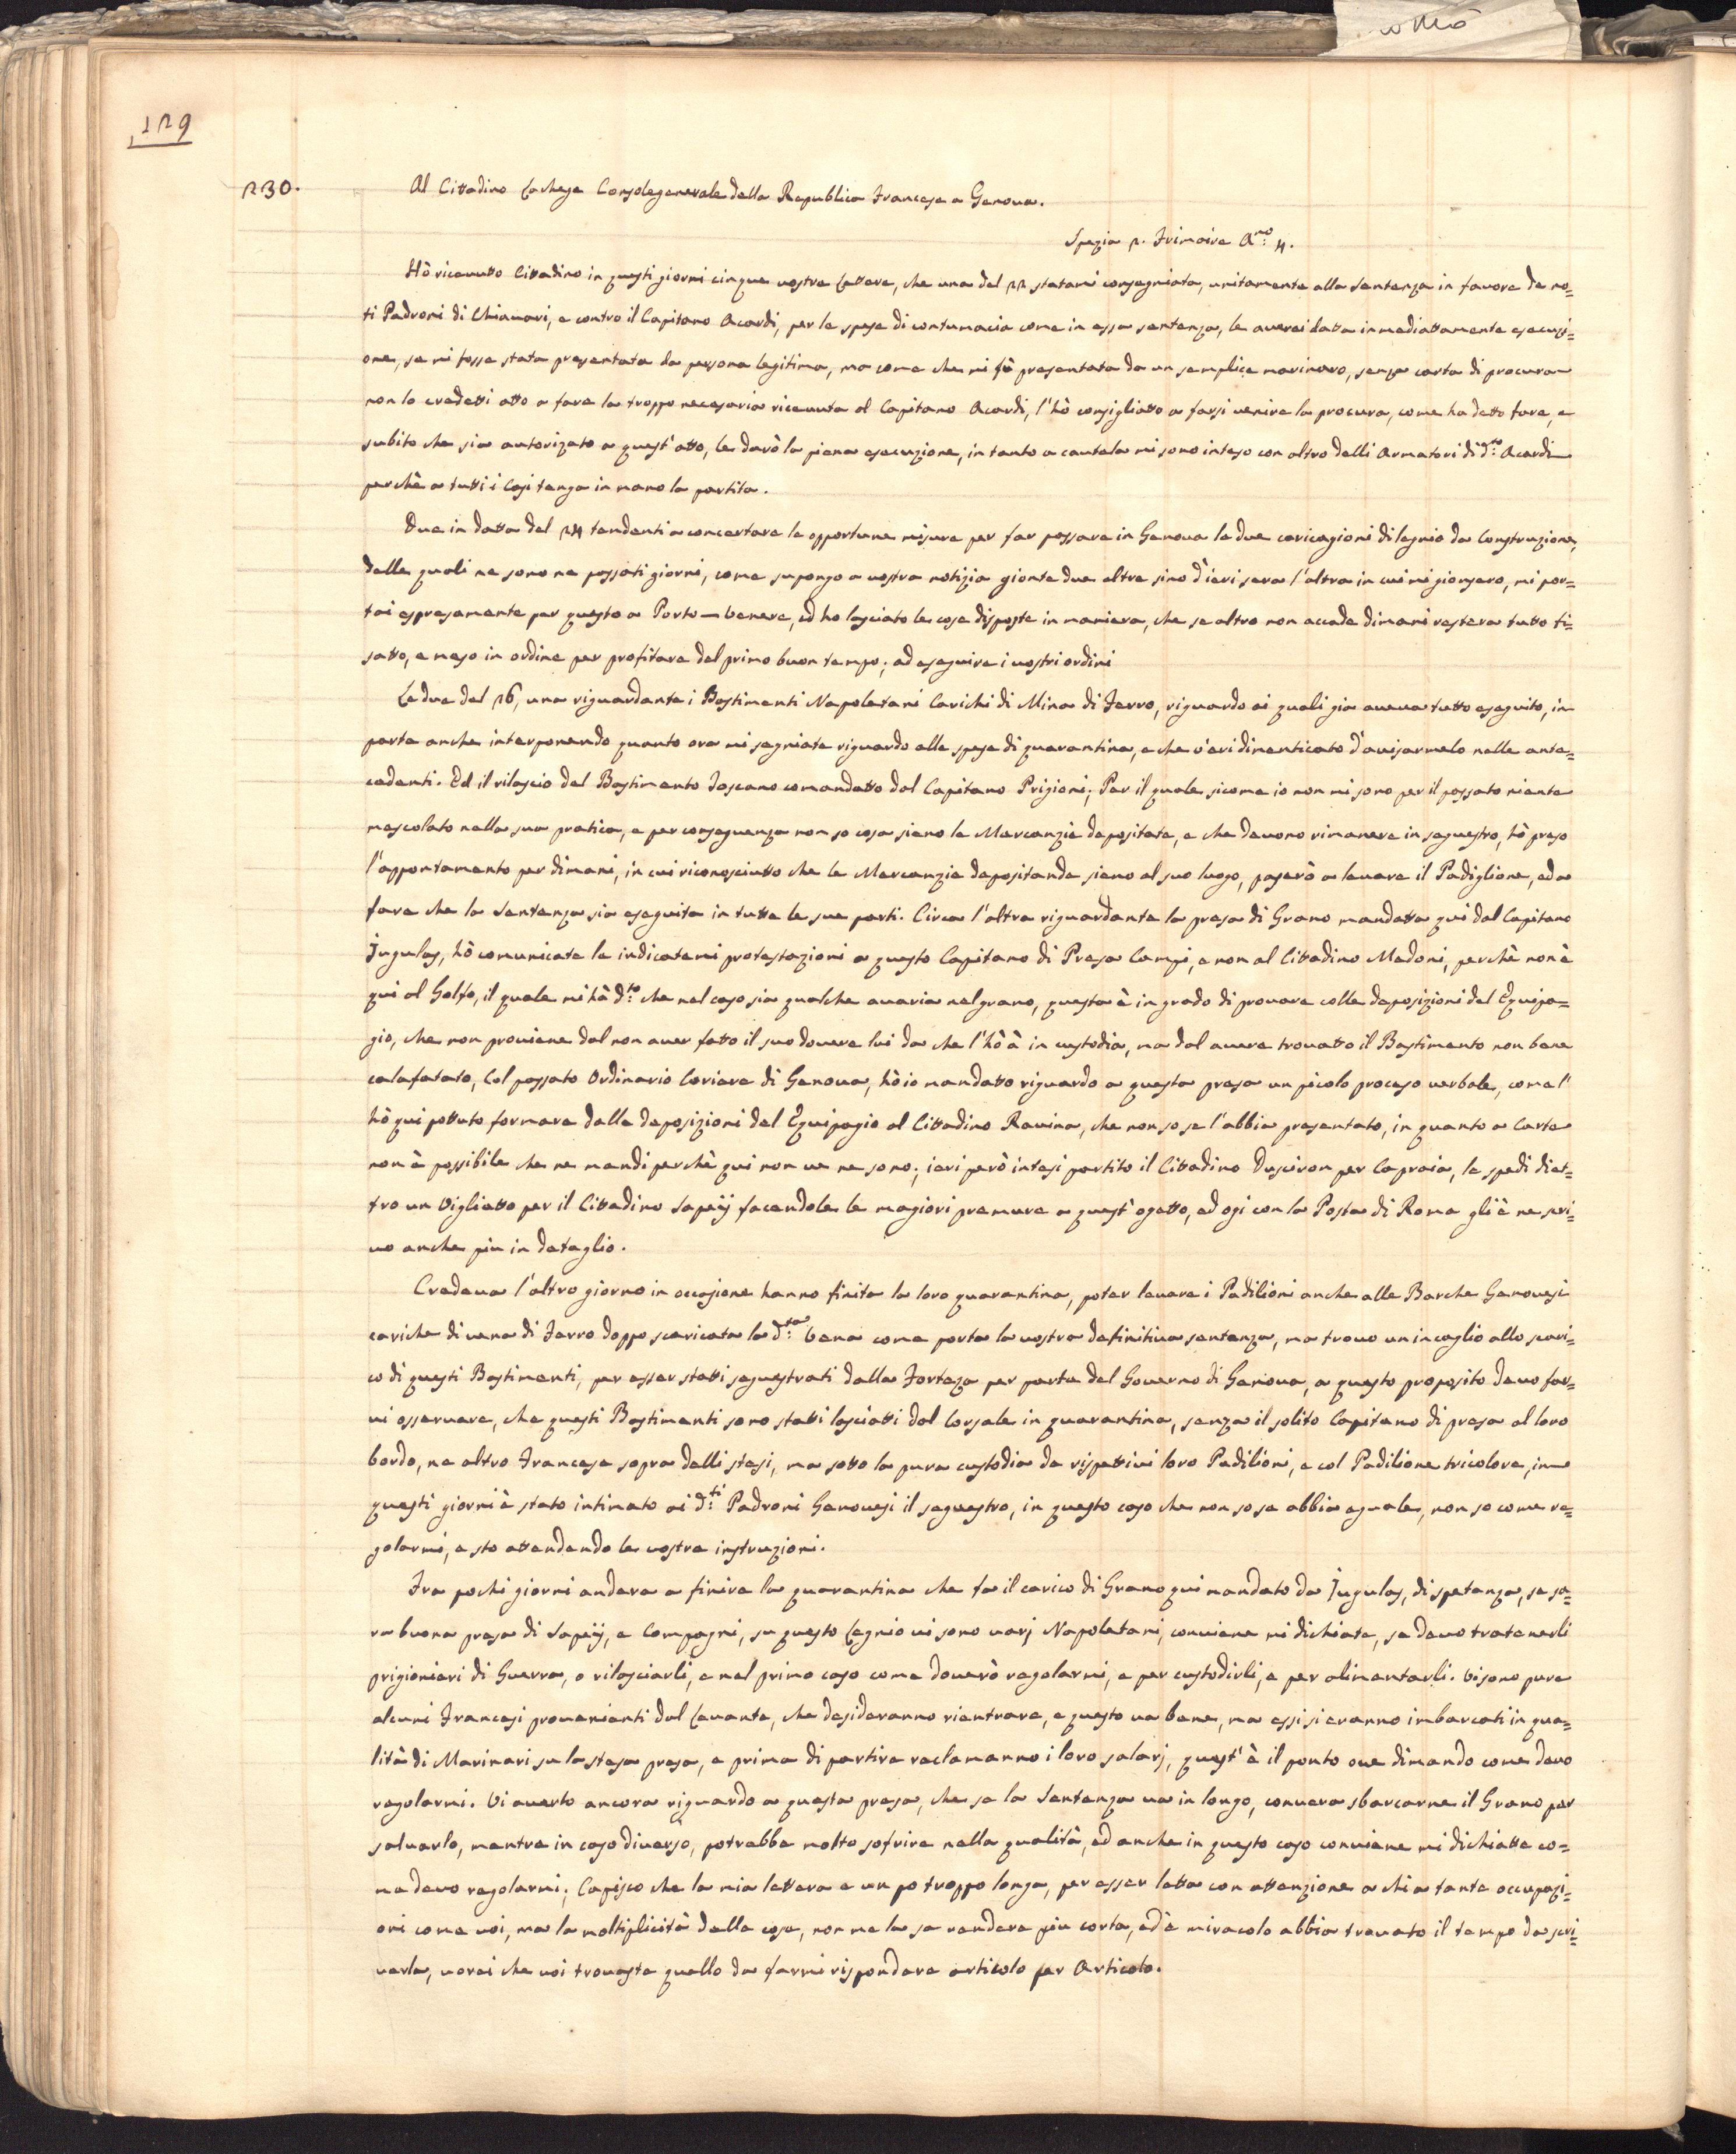 129
230.
Al Cittadino Lachese Consolegenerale della Republica Francese a Genova.
Spezia 2. Frimaire A.no 4.
Hò ricevutto Cittadino in questi giorni cinque vostre Lettere, che una del 22 statami consegniata, unitamente alla Sentenza in favore de no=
ti Padroni di Chiavari, e contro il Capitano Acardi, per le spese di contumacia come in essa sentenza, le averei datta inmediattamente esecuzi=
one, se mi fosse stata presentata da persona legitima, ma come che mi fù presentata da un semplice marinaro, senza carta di procura
non lo credetti atto a fare la troppo necesaria ricevuta al Capitano Acardi, l'hò consigliatto a farsi venire la procura, come ha detto fare, e
subito che sia autorizato a quest'atto, le darò la piena esecuzione, in tanto a cautela mi sono inteso con altro delli Armatori di d.to Acardi
perchè a tutti i Casi tenga in mano la partita.
Due in datta del 24 tendenti a concertare le opportune misure per far passare in Genova le due caricagioni di legnio da Construzione,
delle quali ne sono ne passati giorni, come supongo a vostra notizia gionte due altre sino d'ieri sera l'altra in cui mi gionsero, mi por=
tai espresamente per questo a Porto-Venere, ed ho lasciato le cose disposte in maniera, che se altro non accade dimani restera tutto fi=
satto, e meso in ordine per profitare del primo buon tempo; ad eseguire i vostri ordini
Le due del 26, una riguardante i Bastimenti Napoletani Carichi di Mina di Ferro, riguardo ai quali gia aveva tutto eseguito, in
parte anche interponendo quanto ora mi segniate riguardo alle spese di quarantina, e che v'eri dimenticato d'avisarmelo nelle ante=
cedenti. Ed il rilascio del Bastimento Toscano comandatto dal Capitano Prigioni; Per il quale sicome io non mi sono per il passato niente
mescolato nella sua pratica, e per conseguenza non so cosa sieno le Mercanzie depositate, e che devono rimanere in sequestro, hò preso
l'appontamento per dimani, in cui riconosciutto che le Mercanzie depositande sieno al suo luogo, paserò a levare il Padiglione, ed a
fare che la Sentenza sia eseguita in tutte le sue parti. Circa l'altra riguardante la presa di Grano mandatta qui dal Capitano
Jugulas, hò comunicate le indicatemi protestazioni a questo Capitano di Presa Campi, e non al Cittadino Madoni, perchè non è
qui al Golfo, il quale mi hà d.to che nel caso sia qualche avaria nel grano, questa è in grado di provare colle deposizioni del Equipa=
gio, che non proviene dal non aver fatto il suo dovere lui da che l'hò à in custodia, ma dal avere trovatto il Bastimento non bene
calafatato, Col passato Ordinario Coriere di Genova, hò io mandatto riguardo a questa presa un picolo proceso verbale, come l'
hò qui pottuto formare dalle deposizioni del Equipagio al Cittadino Ravina, che non so se l'abbia presentato, in quanto a Carte
non è possibile che ne mandi perchè qui non ve ne sono; ieri però intesi partito il Cittadino Dusciron per Capraia, le spedi diet=
tro un Vigliatto per il Cittadino Sapeij facendole le magiori premure a quest'ogetto, ed ogi con la Posta di Roma gli è ne scri=
vo anche piu in detaglio.
Credeva l'altro giorno in occasione hanno finita la loro quarantina, poter levare i Padilioni anche alle Barche Genovesi
cariche di vena di Ferro doppo scaricata la d.ta Vena come porta la vostra definitiva sentenza, ma trovo un incaglio allo scari=
co di questi Bastimenti, per esser statti sequestrati dalla Forteza per parte del Governo di Genova, a questo proposito devo far=
vi osservare, che questi Bastimenti sono statti lasciatti dal Corsale in quarantina, senza il solito Capitano di presa al loro
bordo, ne altro Francese sopra delli stesi, ma sotto la pura custodia de rispettivi loro Padilioni, e col Padilione tricolore, in
questi giorni è stato intimato ai d.ti Padroni Genovesi il sequestro, in questo caso che non so se abbia eguale, non so come re=
golarmi, e sto attendendo le vostre instruzioni.
Fra pochi giorni andera a finire la quarantina che fa il carico di Grano qui mandato da Jugulas, di spetanza, se sa=
ra buona presa di Sapeij, e Compagni, su questo Legnio vi sono varj Napoletani, conviene mi dichiate, se devo tratenerli
prigionieri di Guerra, o rilasciarli, e nel primo caso come doverò regolarmi, e per custodirli, e per alimentarli. Vi sono pure
alcuni Francesi provenienti dal Levante, che desideranno rientrare, e questo va bene, ma essi si eranno imbarcati in qua=
lità di Marinari su la stesa presa, e prima di partire reclamanno i loro salarj, quest'è il ponto ove dimando come devo
regolarmi. Vi averto ancora riguardo a questa presa, che se la Sentenza va in longo, convera sbarcarne il Grano per
salvarlo, mentre in caso diverso, potrebbe molto sofrire nella qualità, ed anche in questo caso conviene mi dichiatte co=
me devo regolarmi. Capisco che la mia lettera e un po troppo longa, per esser letta con attenzione a chi a tante occupazi=
oni come voi, ma la moltiplicità delle cose, non me la fa rendere piu corta, ed è miracolo abbia trovato il tempo da scri=
verla, vorei che voi trovaste quello da farmi rispondere articolo per Articolo.